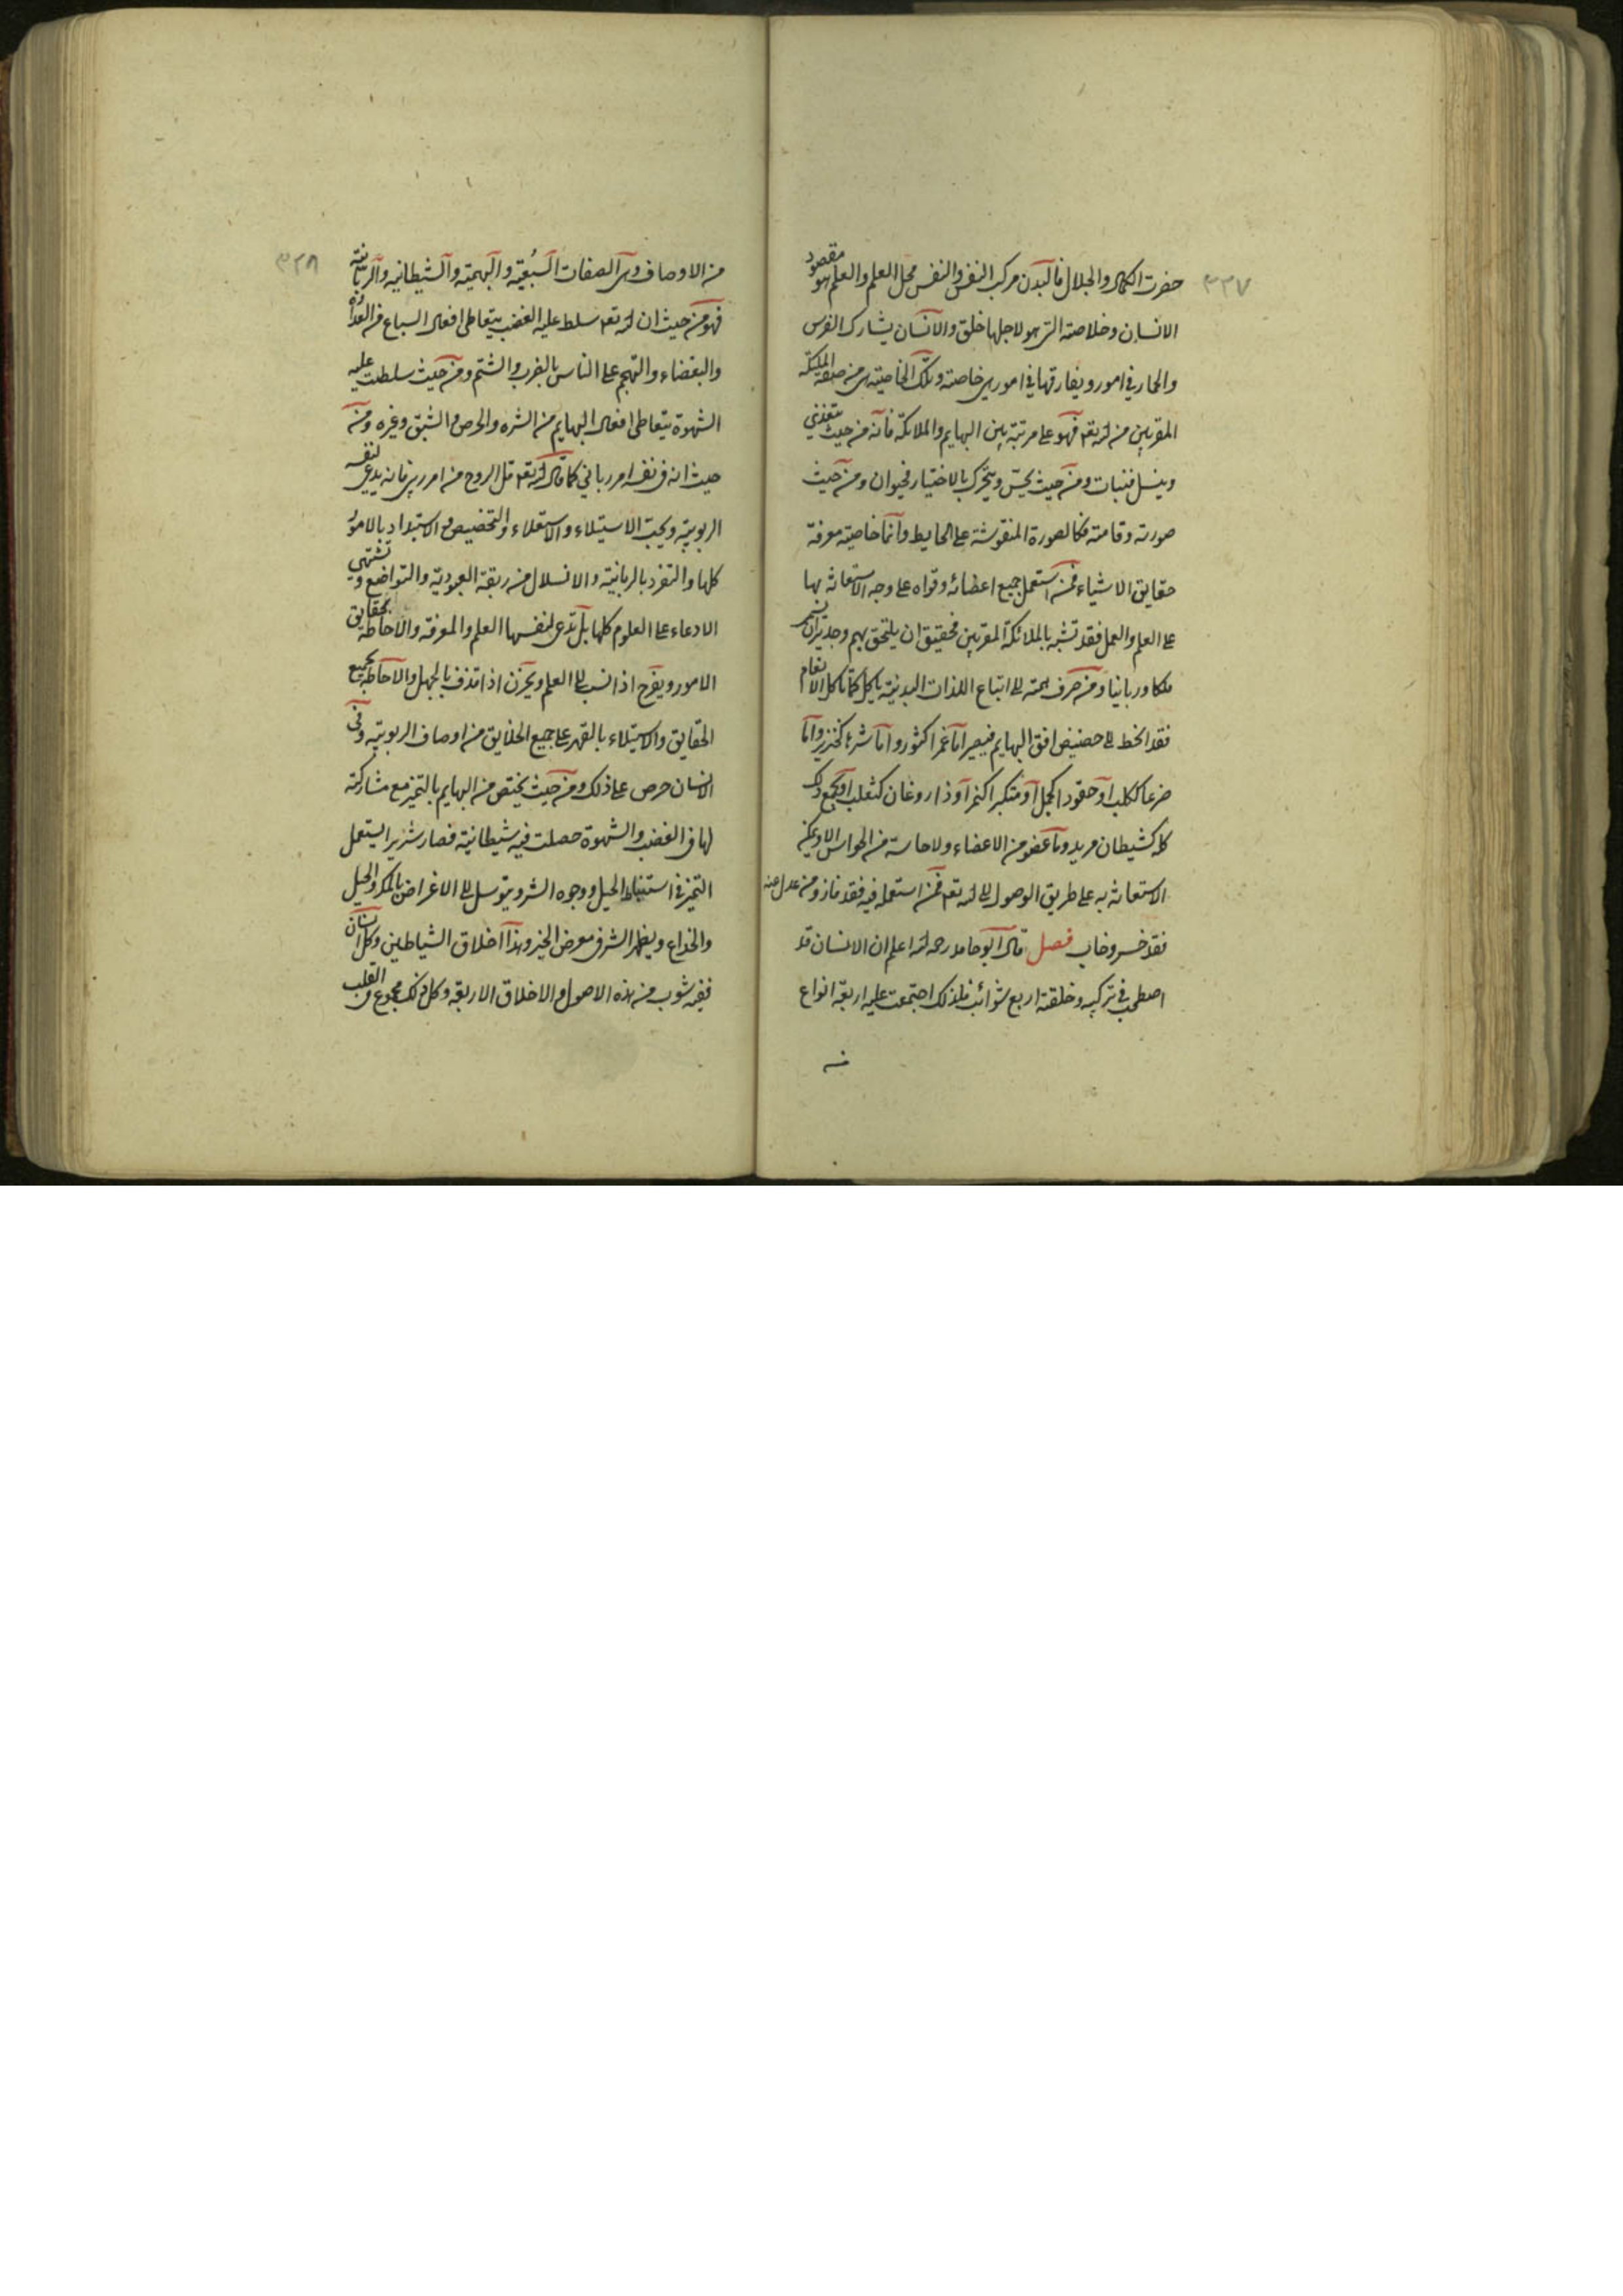 ٣٣٧
حضرت الكمال والجلال فالبدن مركب النفس والنفس محل العلم والعلم هو مقصود
الانسان وخلاصته التى هو لاجلها خلق والانسان يشارك الفرس
والحمار فى امور ويفارقها فى امور هى خاصته وتلك الخاصية هى من صفة الملائكة
المقربين من الله تعم فهو على مرتبة بين البهايم والملائكة فانه من حيث يتغذى
وينسل فنبات ومن حيث يحس ويتحرك بالاختيار فحيوان ومن حيث
صورته وقامته فكالصورة المنقوشة على الحايط وانما خاصيته معرفة
حقايق الاشياء فمن استعمل جميع اعضائه وقواه على وجه الاستعانة بها
على العلم والعمل فقد تشبه بالملائكة المقربين فحقيق ان يلتحق بهم وجدير ان يسمى
ملكا وربانيا ومن صرف همته الى اتباع اللذات البدنية ياكل كما تاكل الانعام
فقد انحط الى حضيض افق البهايم فيصير اما غمرا كثور واما شرها كخنزير واما
ضرعا ككلب او حقودا كجمل او متكبرا كنمر او ذا روغان كثعلب او يجمع ذلك
كله كشيطان مريد وما عضو من الاعضاء ولا حاسة من الحواس الا ويمكن
الاستعانة به على طريق الوصول الى الله تعم فمن استعمله فيه فقد فاز ومن عدل عنه
فقد خسر وخاب فصل قال ابو حامد رحمه الله اعلم ان الانسان قد
اصطحب فى تركيبه وخلقته اربع شوائب فلذلك اجتمعت عليه اربعة انواع
من
٣٣٨
من الاوصاف وهى الصفات السبعية والبهيمية والشيطانية والربانية
فهو من حيث ان الله تعم سلط عليه الغضب يتعاطى افعال السباع من العداوة
والبغضاء والتهجم على الناس بالضرب والشتم ومن حيث سلطت عليه
الشهوة يتعاطى افعال البهايم من الشره والحرص والشبق وغيره ومن
حيث انه فى نفسه امر ربانى كما قال الله تعم قل الروح من امر ربى فانه يدعى لنفسه
الربوبية ويحب الاستيلاء والاستعلاء والتخصيص والاستبداد بالامور
كلها والتفرد بالربانية والانسلال من ربقة العبودية والتواضع وتشتهى
الادعاء على العلوم كلها بل تدعى لنفسها العلم والمعرفة والاحاطة بحقايق
الامور ويفرح اذا نسب الى العلم ويحزن اذا قذف بالجهل والاحاطة بجميع
الحقايق والاستيلاء بالقهر على جميع الخلايق من اوصاف الربوبية وفى
الانسان حرص على ذلك ومن حيث يختص من البهايم بالتميز مع مشاركته
لها فى الغضب والشهوة حصلت فيه شيطانية فصار شريرا يستعمل
التميز فى استنباط الحيل ووجوه الشر ويتوسل الى الاغراض بالمكر والحيل
والخداع ويظهر الشر فى معرض الخير وهذا اخلاق الشياطين وكل انسان
ففيه شوب من هذه الاصول والاخلاق الاربعة وكل ذلك مجموع فى القلب